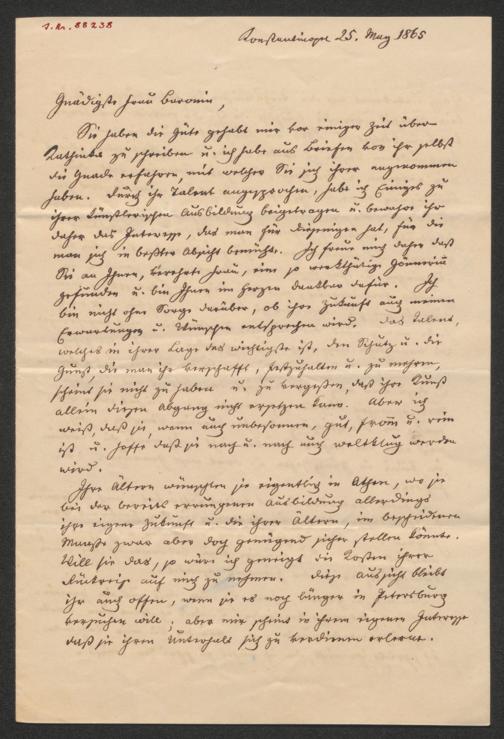 I.Nr. 88238
Konstantinopel 25. May 1865
Gnädigste Frau Baronin,
Sie haben die Güte gehabt mir vor einiger Zeit über
Kathinka zu schreiben u. ich habe aus Briefen von ihr selbst
die Gnade erfahren, mit welcher Sie sich ihrer angenommen
haben. Durch ihr Talent angesprochen, habe ich Einiges zu
ihrer künstlerischen Ausbildung beigetragen u. bewahre ihr
daher das Interesse, das man für diejenigen hat, für die
man sich in bester Absicht bemühte. Ich freue mich daher daß
Sie an Ihnen, verehrte Frau, eine so werkthätige Gönnerin
gefunden u. bin Ihnen im Herzen dankbar dafür. Ich
bin nicht ohne Sorge darüber, ob ihre Zukunft auch meinen
Erwartungen u. Wünschen entsprechen wird. Das Talent,
welches in ihrer Lage das wichtigste ist, den Schutz u. die
Gunst, die man ihr verschafft, festzuhalten u. zu mehren,
scheint sie nicht zu haben u. zu vergeßen, daß ihre Kunst
allein diesen Abgang nicht ersetzen kann. Aber ich
weiß, daß sie, wenn auch unbesonnen, gut, fromm u. rein
ist u. hoffe daß sie nach u. nach auch weltklug werden
wird.
Ihre Ältern wünschten sie eigentlich in Athen, wo sie
bei der bereits errungenen Ausbildung allerdings
ihre eigene Zukunft u. die ihrer Ältern, in bescheidenem
Maaße zwar aber doch genügend sicher stellen könnte.
Will sie das, so wäre ich geneigt die Kosten ihrer
Rückreise auf mich zu nehmen. Diese Aussicht bleibt
ihr auch offen, wenn sie es noch länger in Petersburg
versuchen will; aber mir scheint in ihrem eigenen Interesse
daß sie ihren Unterhalt sich zu verdienen erlerne.